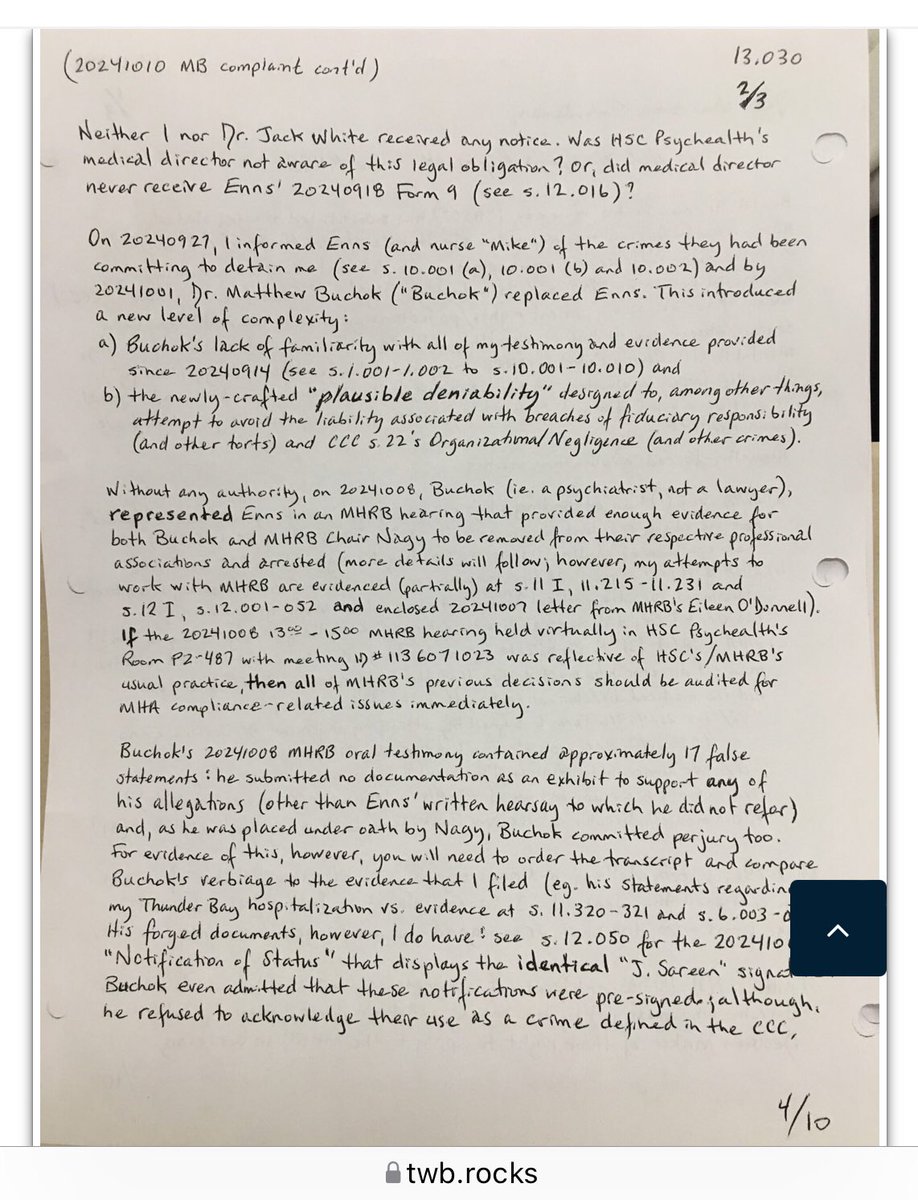 (20241010 MB complaint cont'd)
13.030
2/3
Neither I nor Dr. Jack White received any notice. Was HSC Psychealth's
medical director not aware of this legal obligation? Or, did medical director
never receive Enns' 20240918 Form 9 (see s.12.016)?
On 20240927, I informed Enns (and nurse "Mike") of the crimes they had been
committing to detain me (see s. 10.001 (a), 10.001 (b) and 10.002) and by
20241001, Dr. Matthew Buchok ("Buchok") replaced Enns. This introduced
a new level of complexity:
a) Buchok's lack of familiarity with all of my testimony and evidence provided
since 20240914 (see s.1.001-1.002 to s.10.001-10.010) and
b) the newly-crafted "plausible deniability" designed to, among other things,
attempt to avoid the liability associated with breaches of fiduciary responsibility
(and other torts) and CCC s.22's Organizational Negligence (and other crimes).
Without any authority, on 20241008, Buchok (ie. a psychiatrist, not a lawyer),
represented Enns in an MHRB hearing that provided enough evidence for
both Buchok and MHRB Chair Nagy to be removed from their respective professional
associations and arrested (more details will follow; however, my attempts to
work with MHRB are evidenced (partially) at s.11 I, 11.215-11.231 and
s.12 I, s.12.001-052 and enclosed 20241007 letter from MHRB's Eileen O'Donnell).
If the 20241008 1300 - 1500 MHRB hearing held virtually in HSC Psychealth's
Room P2-487 with meeting ID # 113 6071023 was reflective of HSC's/MHRB's
usual practice, then all of MHRB's previous decisions should be audited for
MHA compliance-related issues immediately.
Buchok's 20241008 MHRB oral testimony contained approximately 17 false
statements: he submitted no documentation as an exhibit to support any of
his allegations (other than Enns' written hearsay to which he did not refer)
and, as he was placed under oath by Nagy, Buchok committed perjury too.
For evidence of this, however, you will need to order the transcript and compare
Buchok's verbiage to the evidence that I filed (eg. his statements regardin
my Thunder Bay hospitalization vs. evidence at s. 11.320-321 and s.6.003-0
His forged documents, however, I do have: see s.12.050 for the 202410
"Notification of Status" that displays the identical "J. Sareen" signa
Buchok even admitted that these notifications were pre-signed; although,
he refused to acknowledge their use as a crime defined in the CCC,
4/10
twb.rocks